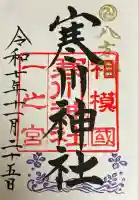 八方除
相模國
寒川神社
一之宮
令和七年十一月二十五日